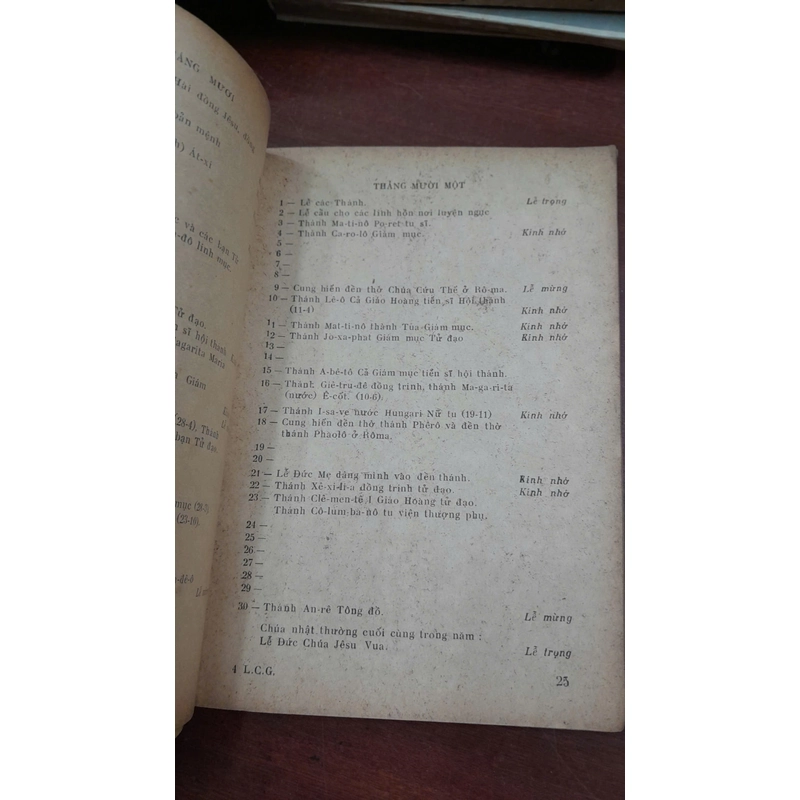 THÁNG MƯỜI
đồng Jêsu, đồng
mệnh
Át-xi
và các bạn Tử
linh mục.
Tử đạo.
sĩ hội thánh
Giám
(28-4). Thánh
Tử đạo.
mục (28-5).
(23-10).
THÁNG MƯỜI MỘT
1 — Lễ các Thánh. Lễ trọng
2 — Lễ cầu cho các linh hồn nơi luyện ngục
3 — Thánh Ma-ti-nô Po-ret tu sĩ.
4 — Thánh Ca-ro-lô Giám mục. Kính nhớ
5 —
6 —
7 —
8 —
9 — Cung hiến đền thờ Chúa Cứu Thế ở Rôma. Lễ mừng
10 — Thánh Lê-ô Cả Giáo Hoàng tiến sĩ Hội thánh
(11-4) Kính nhớ
11 — Thánh Mat-ti-nô thành Tua Giám mục. Kính nhớ
12 — Thánh Jo-xa-phat Giám mục Tử đạo Kính nhớ
13 —
14 —
15 — Thánh A-bê-tô Cả Giám mục tiến sĩ hội thánh.
16 — Thánh Giê-tru-đê đồng trinh, thánh Ma-ga-ri-ta
(nước) Ê-cốt. (10-6).
17 — Thánh I-sa-ve nước Hungari Nữ tu (19-11) Kính nhớ
18 — Cung hiến đền thờ thánh Phêrô và đền thờ
thánh Phaolô ở Rôma.
19 —
20 —
21 — Lễ Đức Mẹ dâng mình vào đền thánh. Kính nhớ
22 — Thánh Xê-xi-li-a đồng trinh tử đạo. Kính nhớ
23 — Thánh Clê-men-tê I Giáo Hoàng tử đạo.
Thánh Cô-lum-ba-nô tu viện thượng phụ.
24 —
25 —
26 —
27 —
28 —
29 —
30 — Thánh An-rê Tông đồ. Lễ mừng
Chúa nhật thường cuối cùng trong năm :
Lễ Đức Chúa Jêsu Vua. Lễ trọng
4 L.C.G. 25